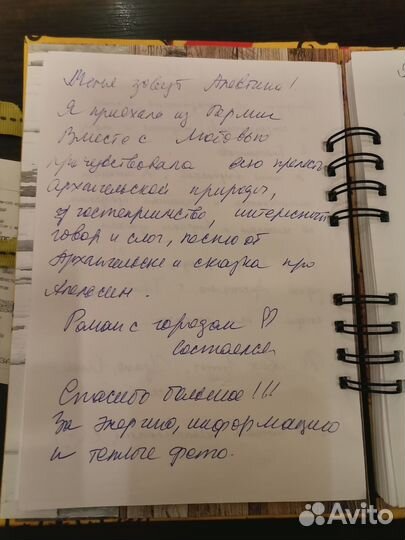 Меня зовут Алевтина!
Я приехала из Перми
Вместе с Любовью
прочувствовала всю прелесть
Архангельской природы,
гостеприимство, интересный
говор и слог, песню об
Архангельске и сказка про
Апельсин.
Роман с городом ♡
состоялся
Спасибо большое!!!
За энергию, информацию
и теплые фото.
Avito